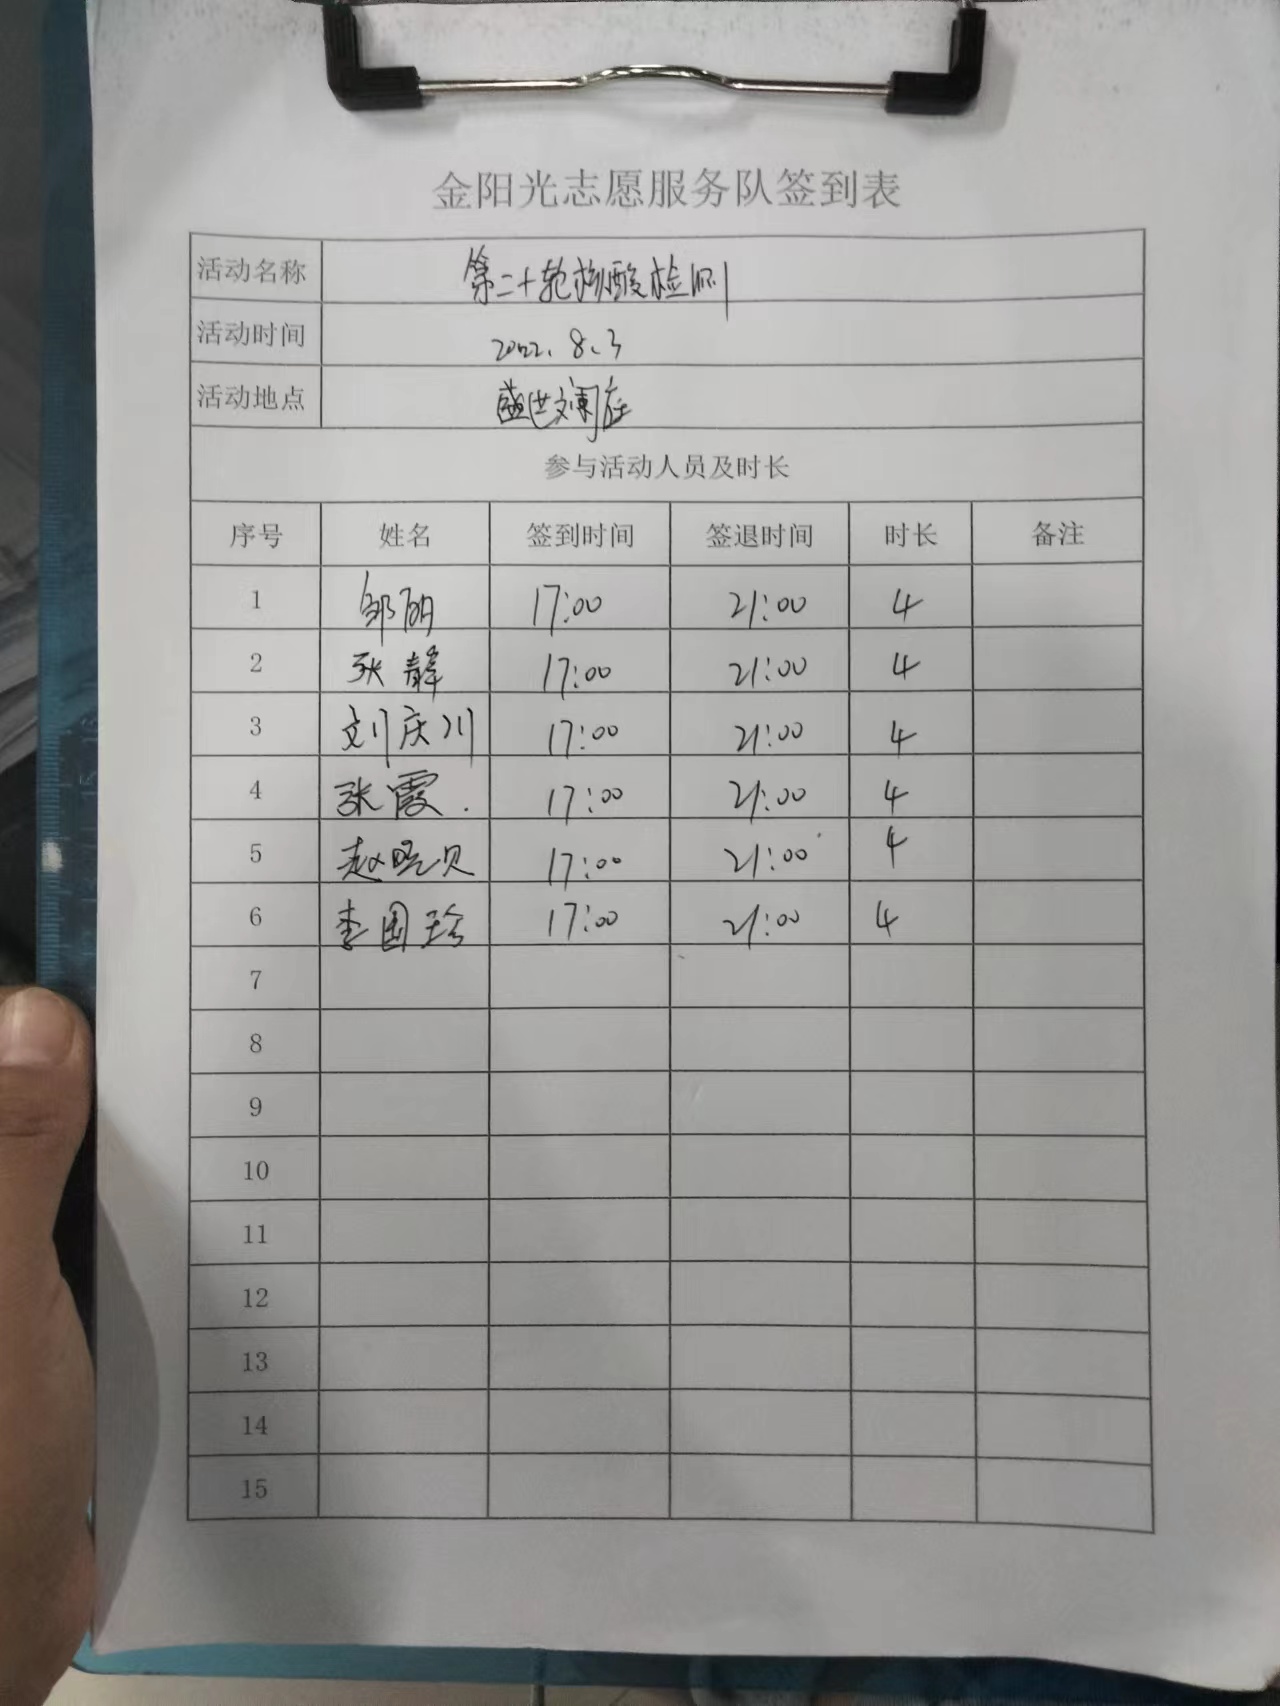 金阳光志愿服务队签到表
活动名称 第二十轮核酸检测
活动时间 2022.8.3
活动地点 盛世文澜庭
参与活动人员及时长
序号 姓名 签到时间 签退时间 时长 备注
1 邹丽 17:00 21:00 4
2 张静 17:00 21:00 4
3 刘庆川 17:00 21:00 4
4 张霞. 17:00 21:00 4
5 赵晓贝 17:00 21:00 4
6 李国珍 17:00 21:00 4
7
8
9
10
11
12
13
14
15